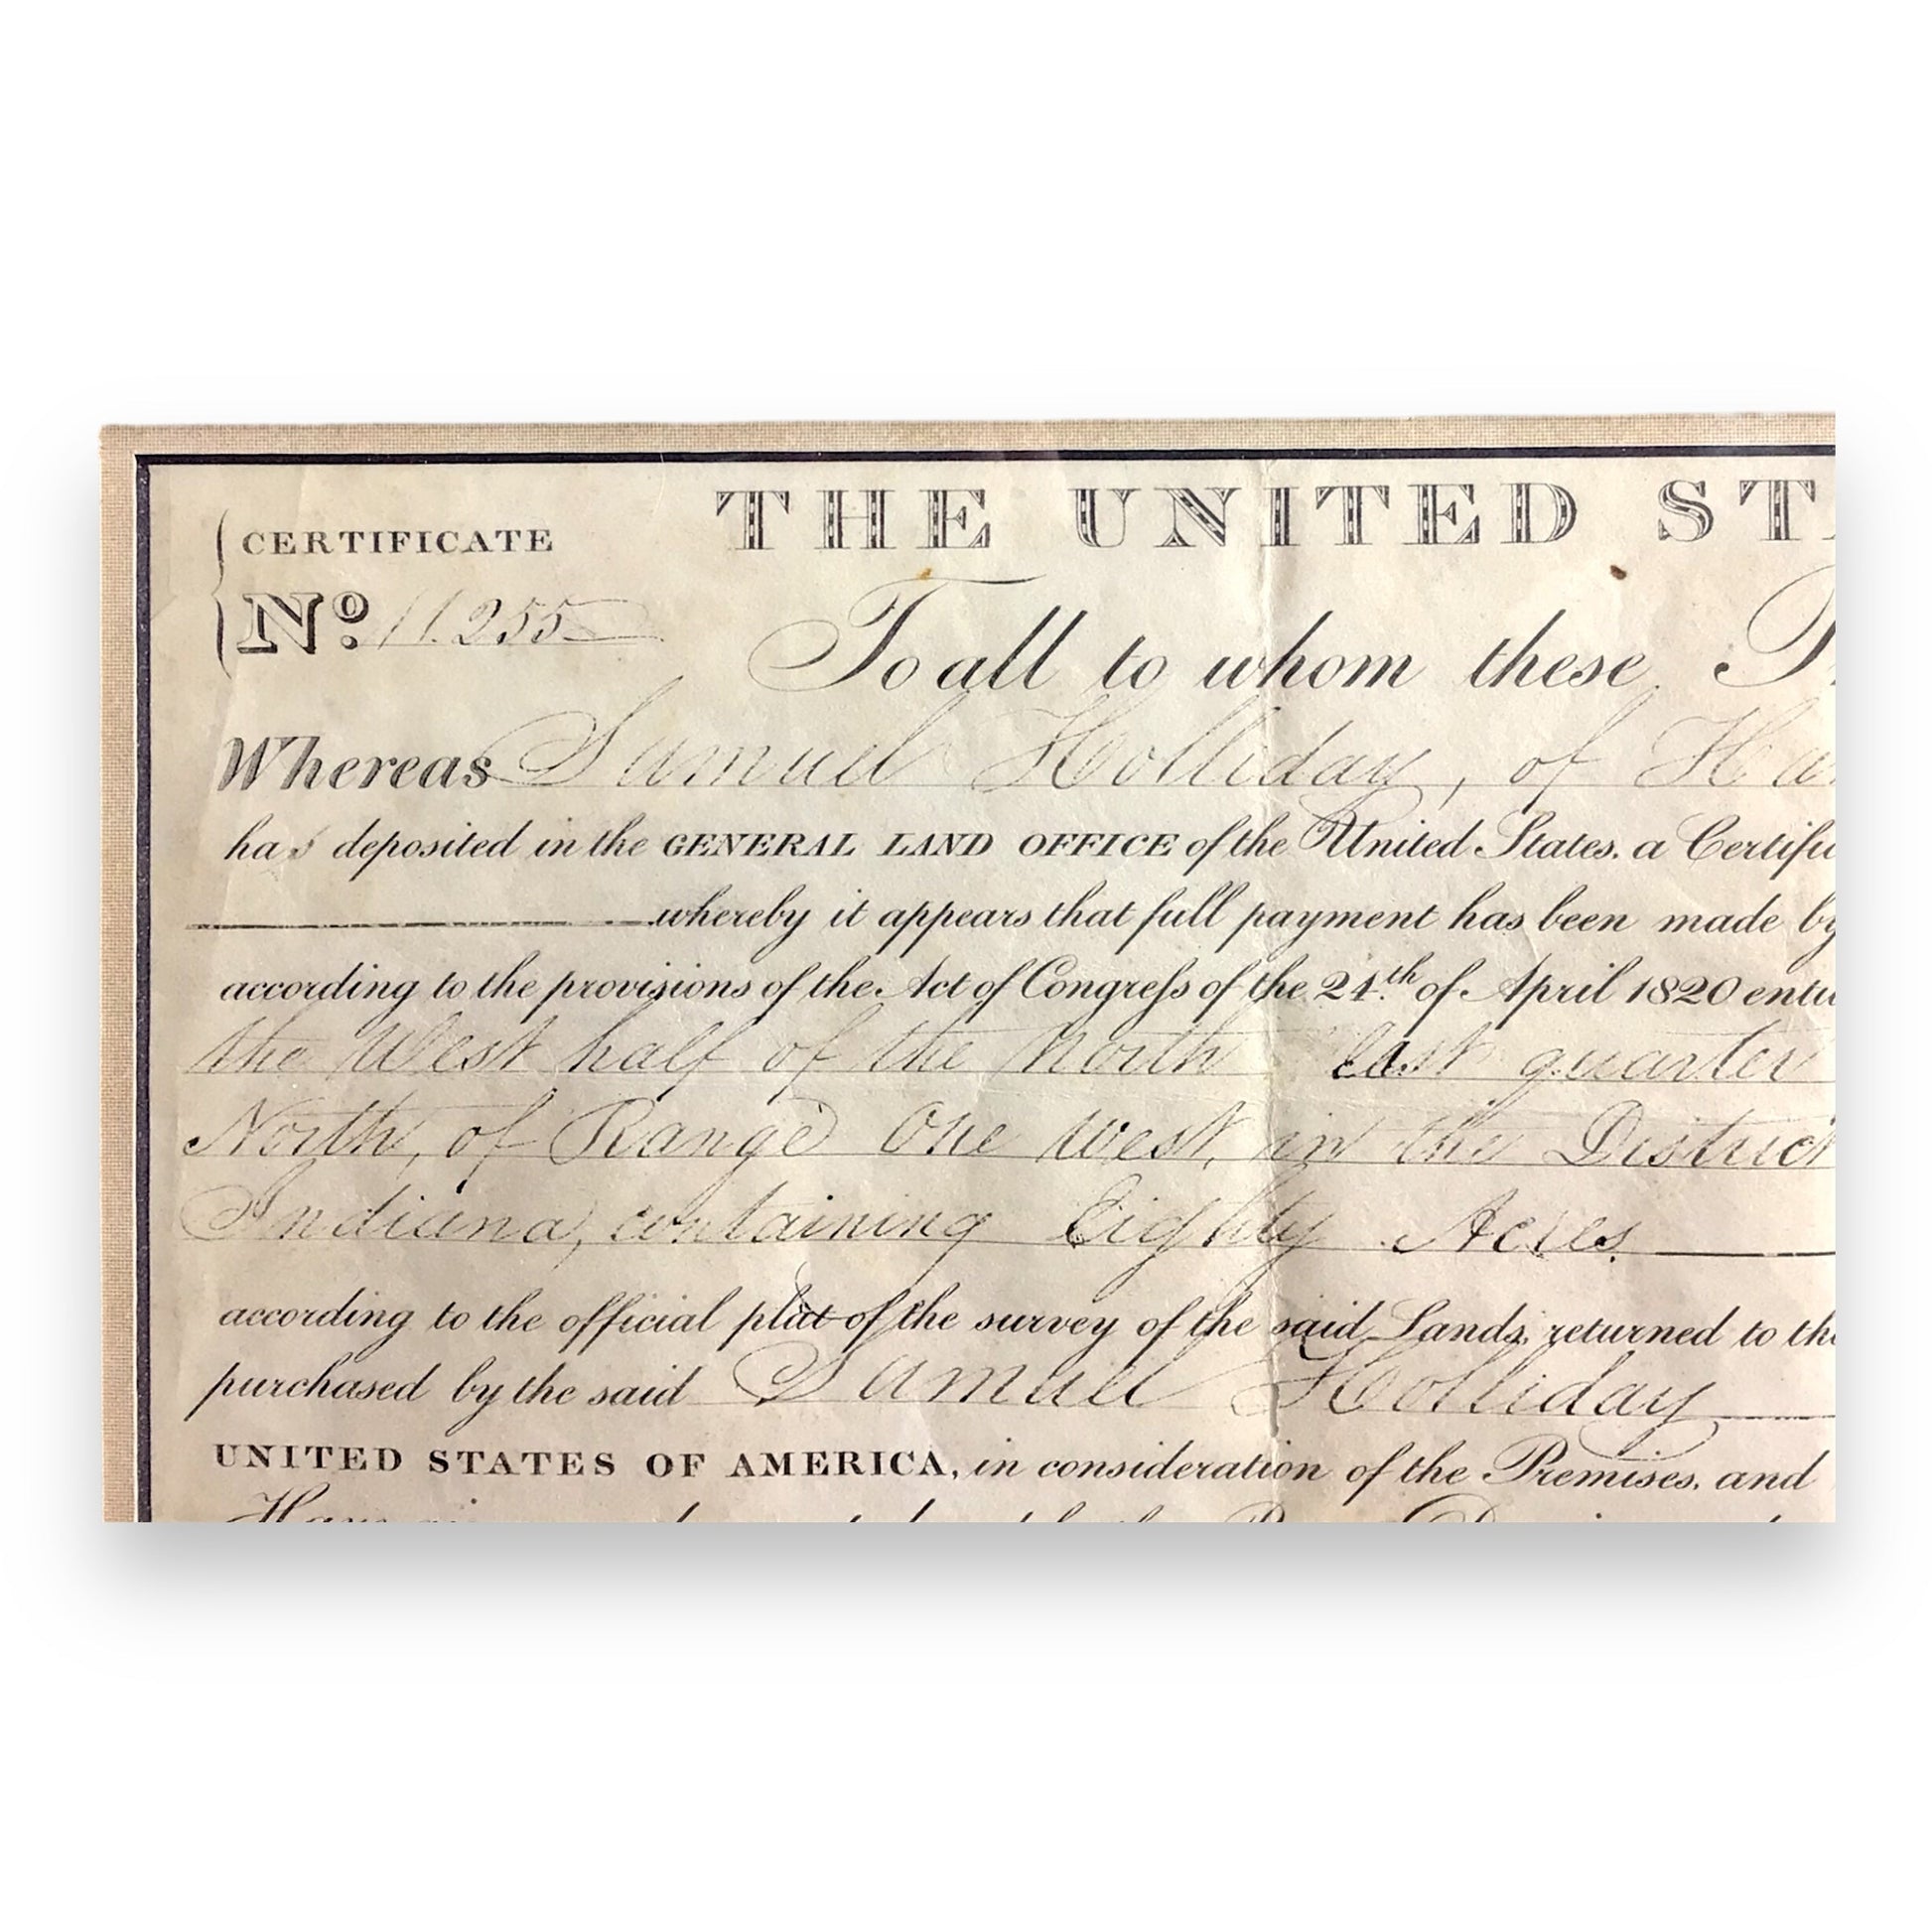 CERTIFICATE
THE UNITED ST
Nº. 11.255
To all to whom these
Whereas Samuel Holliday, of Ha
has deposited in the GENERAL LAND OFFICE of the United States, a Certific
whereby it appears that full payment has been made by
according to the provisions of the Act of Congreſs of the 24th of April 1820 entit
the West half of the North East quarter
North, of Range One West, in the District
Indiana, containing Eighty Acres.
according to the official plat of the survey of the said Lands, returned to the
purchased by the said Samuel Holliday
UNITED STATES OF AMERICA, in consideration of the Premises, and